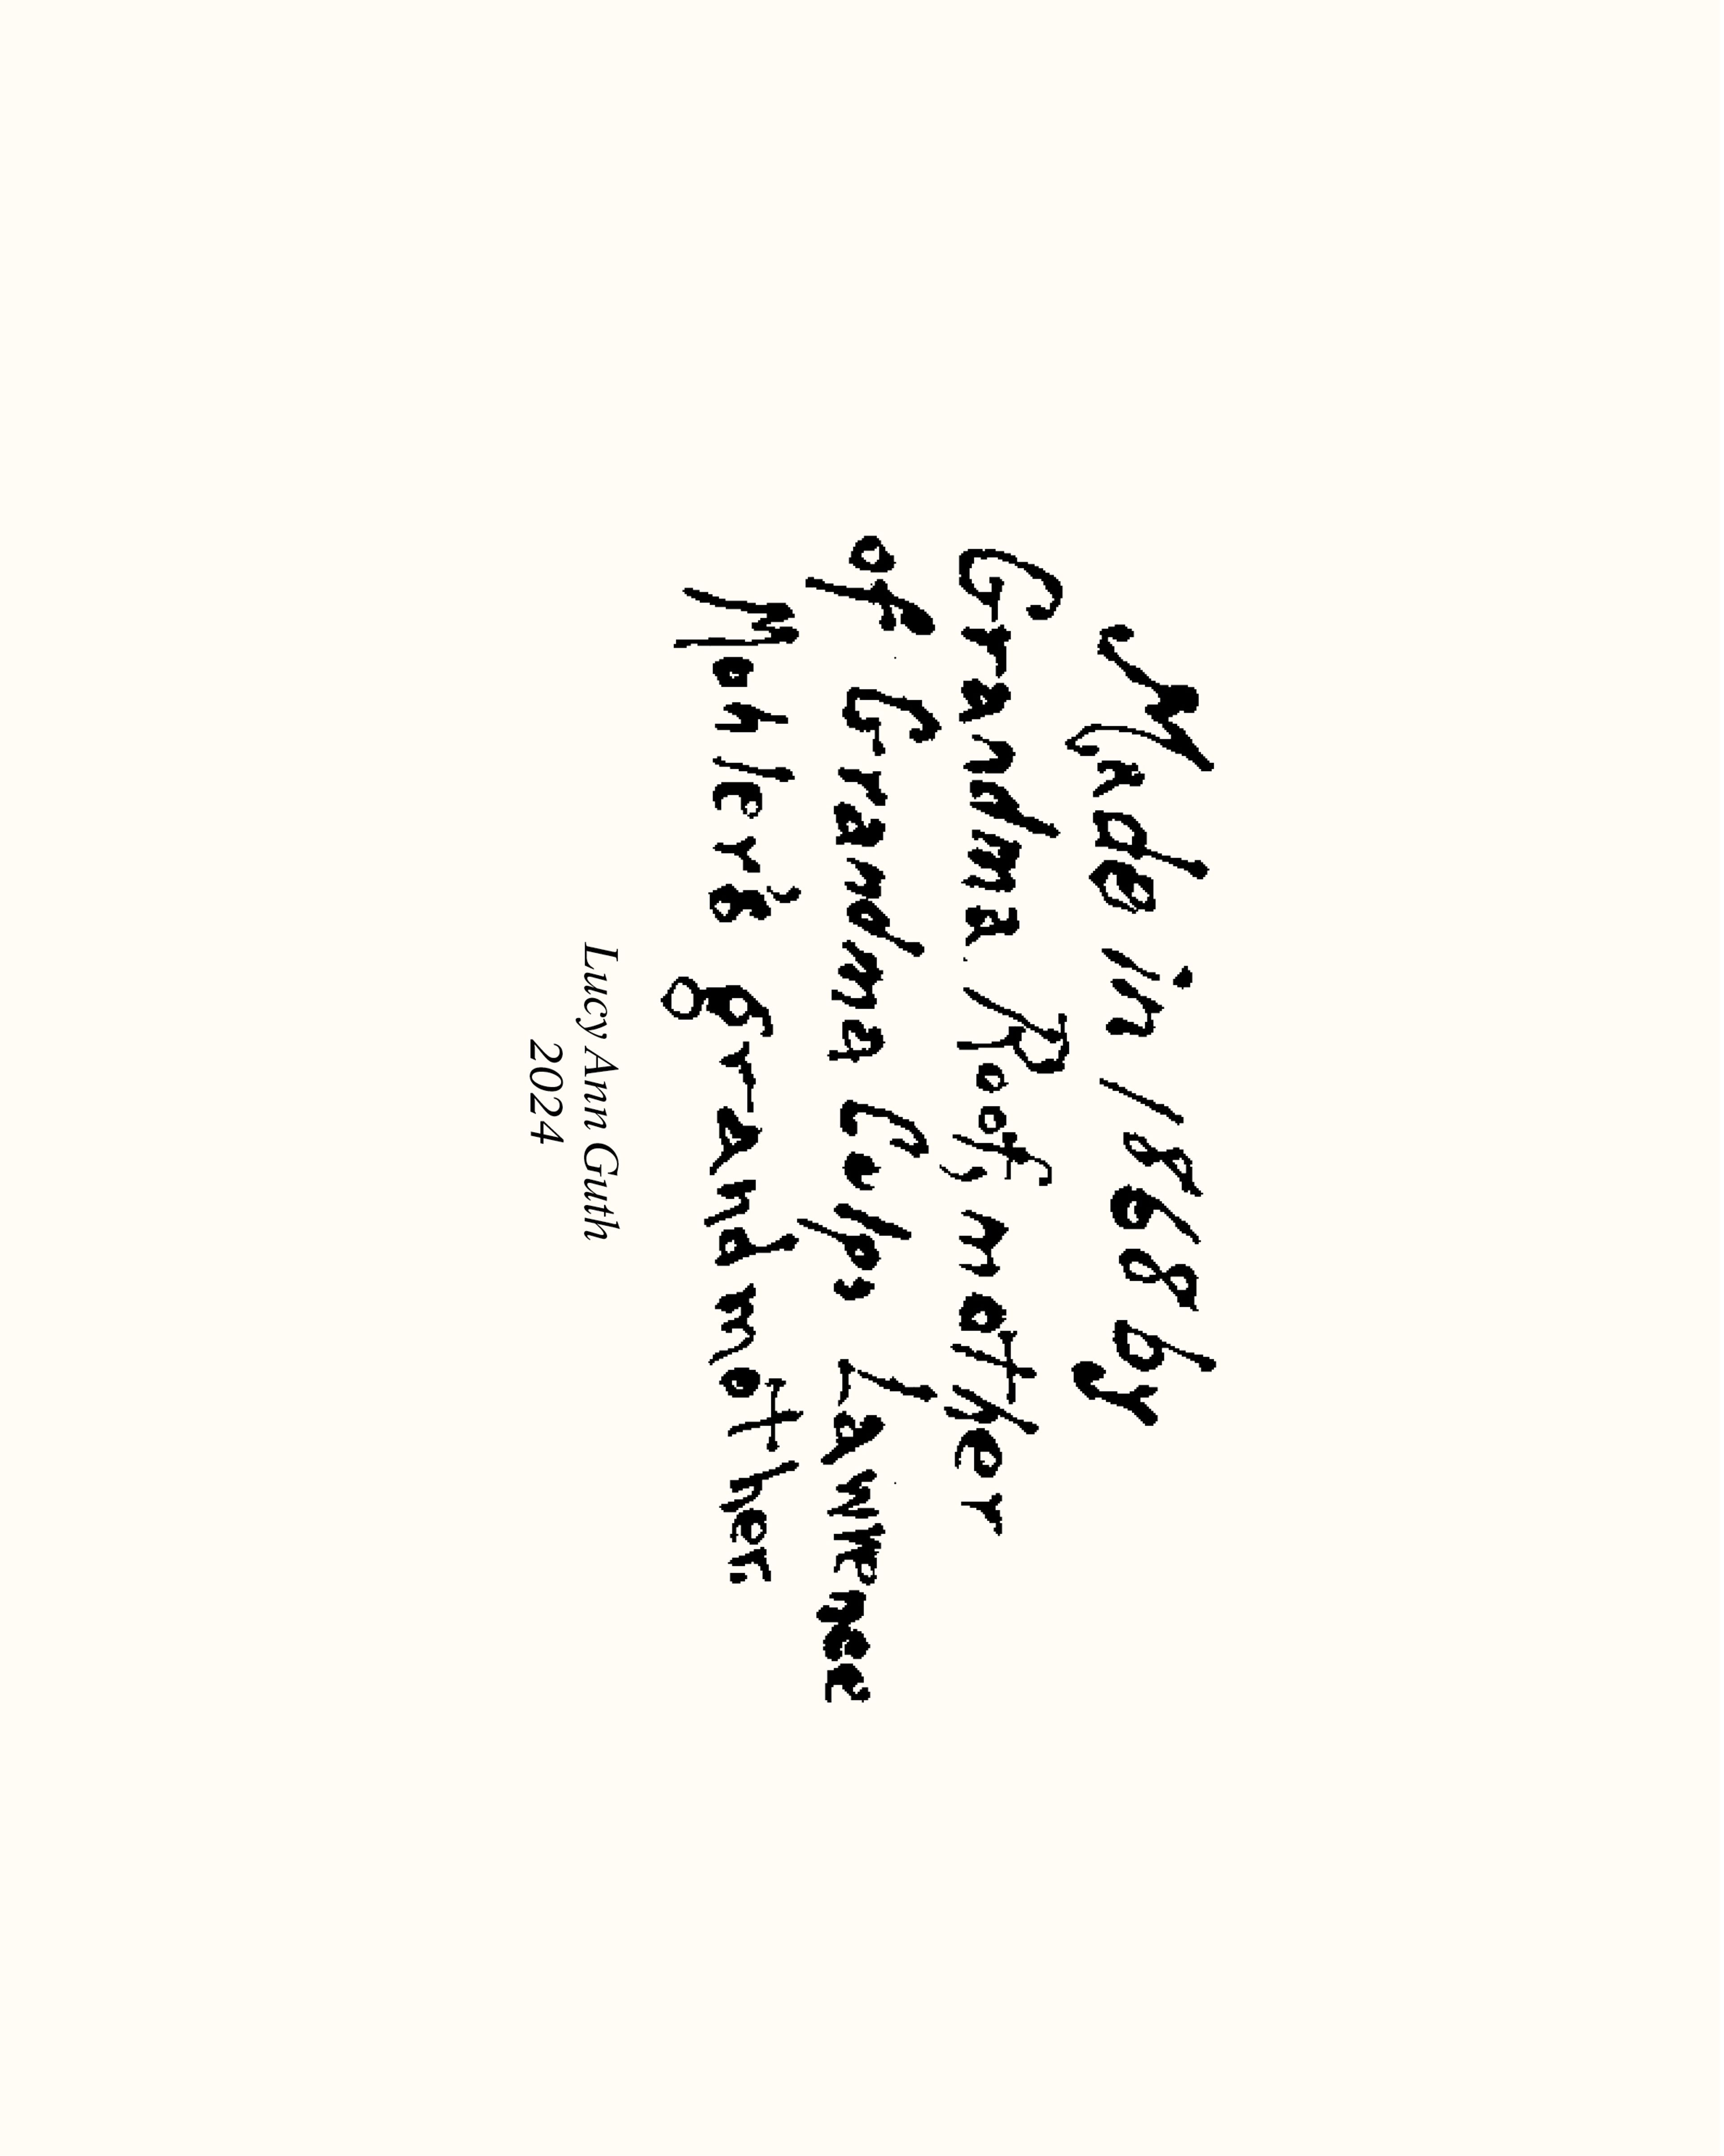 Made in 1868 by
Grandma Roof, mother
of Grandma Culp, Lawrence
Mohler's grandmother.
Lucy Ann Guth
2024